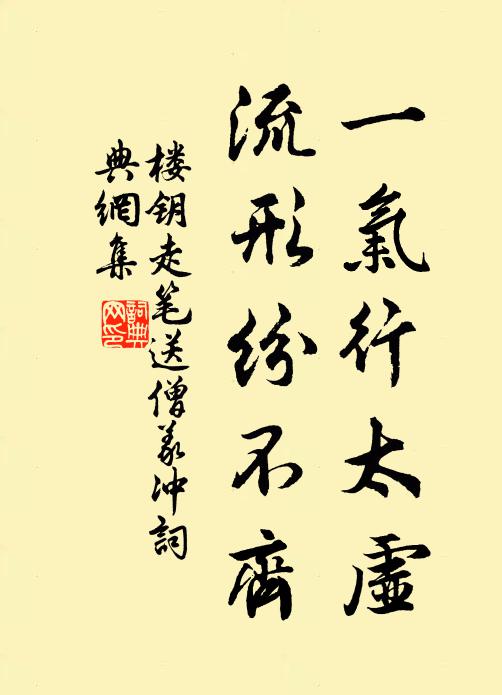 一氣行太虛
流形紛不齊
楼钥走笔送僧義冲詞
典網集
詞典网印